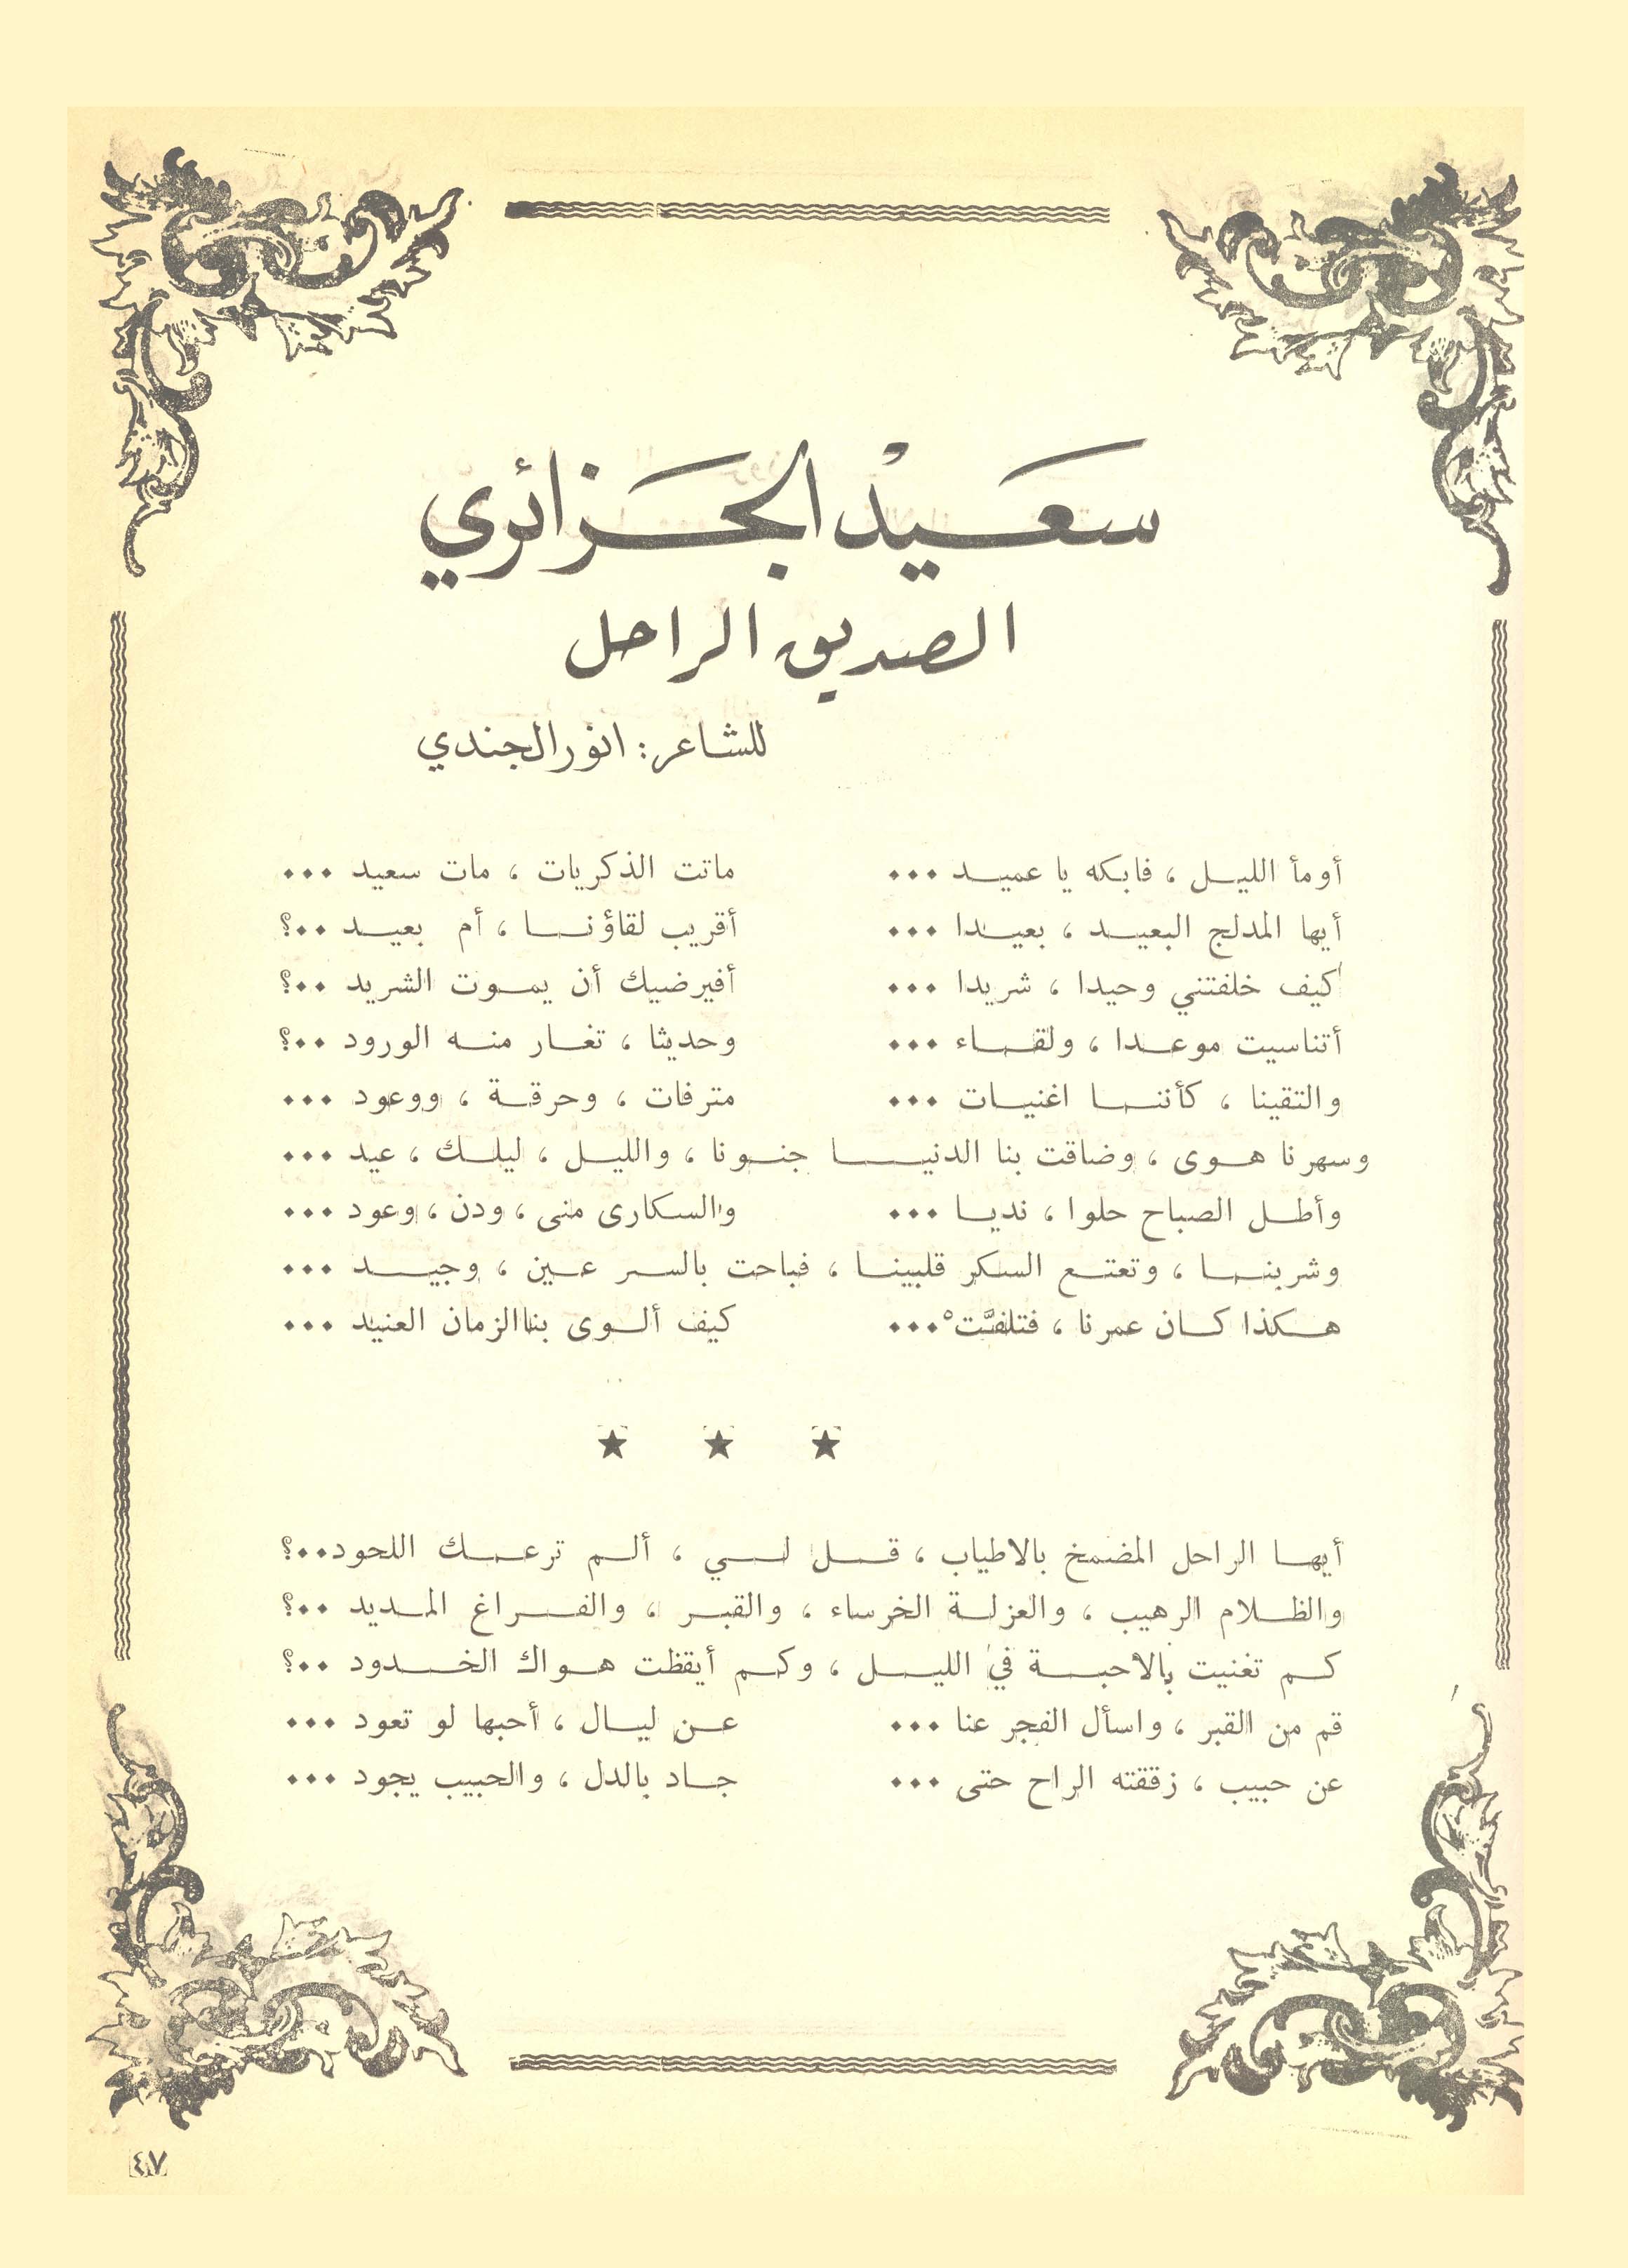 سعَيدْ الجَزائري
الصديق الراحل
للشاعر: انور الجندي
أومأ الليل ، فابكه يا عميد ... ماتت الذكريات ، مات سعيد ...
أيها المدلج البعيد ، بعيدا ... أقريب لقاؤنا ، أم بعيد ..؟
كيف خلفتني وحيدا ، شريدا ... أفيرضيك أن يموت الشريد ..؟
أتناسيت موعدا ، ولقاء ... وحديثا ، تغار منه الورود ..؟
والتقينا ، كأننا اغنيات ... مترفات ، وحرقة ، ووعود ...
وسهرنا هوى ، وضاقت بنا الدنيا جنونا ، والليل ، ليلك ، عيد ...
وأطل الصباح حلوا ، نديا ... والسكارى منى ، ودن ، وعود ...
وشربنا ، وتعتع السكر قلبينا ، فباحت بالسر عين ، وجيد ...
هكذا كان عمرنا ، فتلفَّتْ ... كيف ألوى بنا الزمان العنيد ...
★ ★ ★
أيها الراحل المضمخ بالاطياب ، قل لي ، ألم ترعبك اللحود..؟
والظلام الرهيب ، والعزلة الخرساء ، والقبر ، والفراغ المديد ..؟
كم تغنيت بالاحبة في الليل ، وكم أيقظت هواك الخدود ..؟
قم من القبر ، واسأل الفجر عنا ... عن ليال ، أحبها لو تعود ...
عن حبيب ، زققته الراح حتى ... جاد بالدل ، والحبيب يجود ...
٤٧